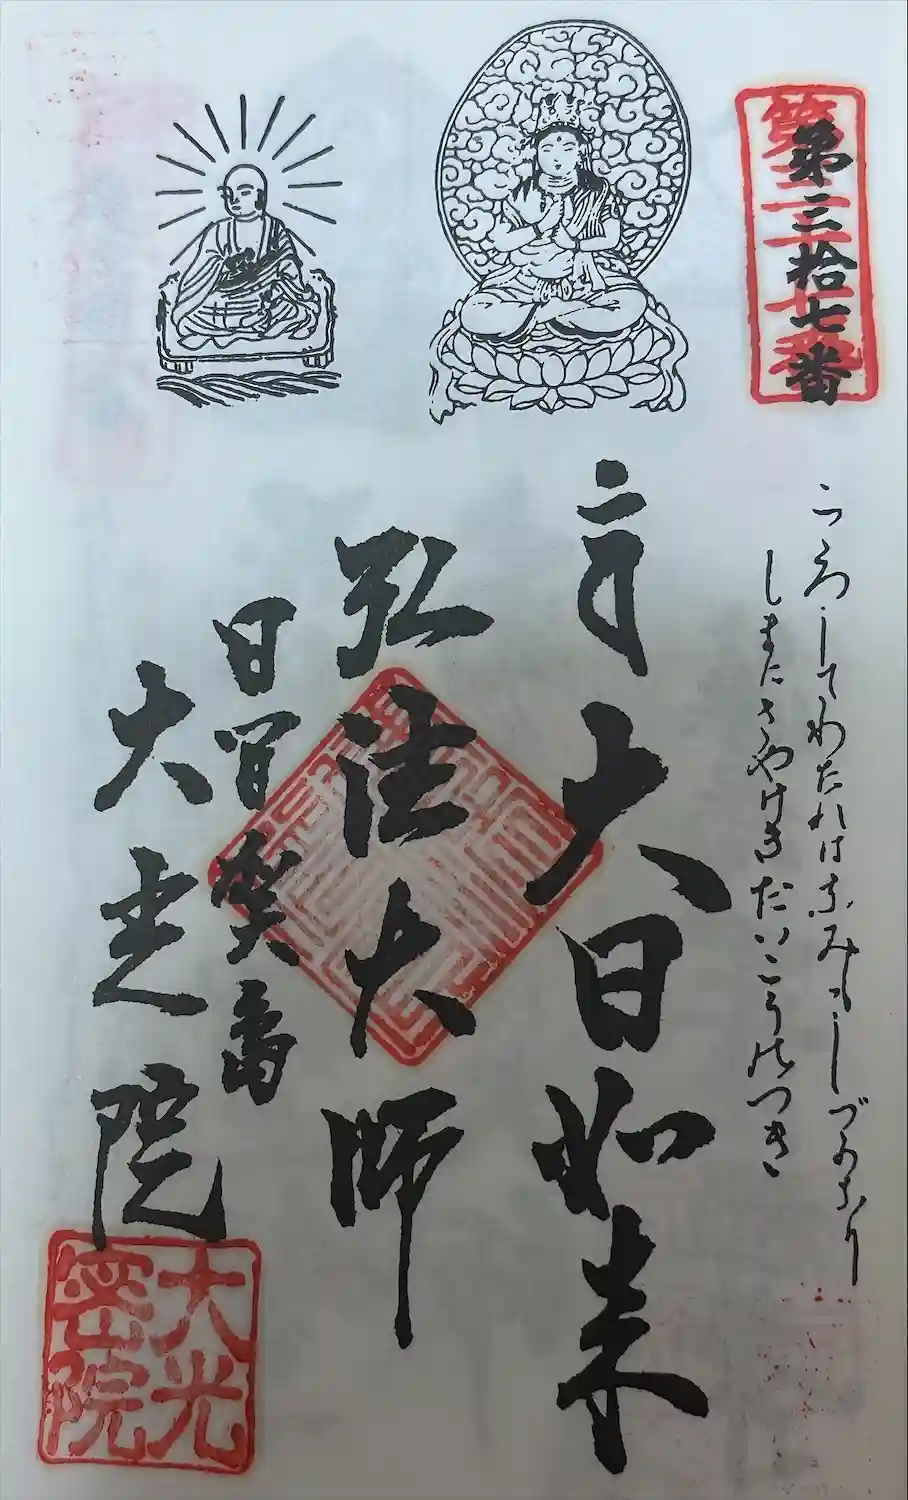 第三拾七番
こゝろしてわたれはなみもしづかなり
しまにさやけきだいこうのつき
大日如来
弘法大師
日間賀島
大光院
大光
密院